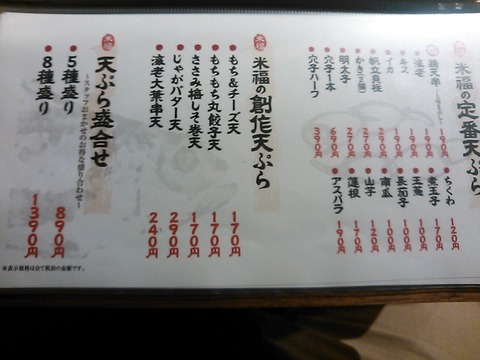 米福の定番天ぷら
海老 190円
キス 190円
イカ 170円
帆立貝柱 290円
かき(2個) 270円
明太子 290円
穴子1本 690円
穴子ハーフ 390円
ちくわ 120円
煮玉子 170円
玉葱 100円
長茄子 100円
南瓜 100円
山子 120円
蓮根 170円
アスパラ 190円
米福の創作天ぷら
もち&チーズ天 170円
もちもち丸餃子天 170円
ささみ梅しそ巻天 170円
じゃがバター天 290円
海老大葉串天 240円
天ぷら盛合せ
~スタッフおまかせのお得な盛り合わせ~
5種盛り 890円
8種盛り 1390円
※表示価格は全て税別の金額です。